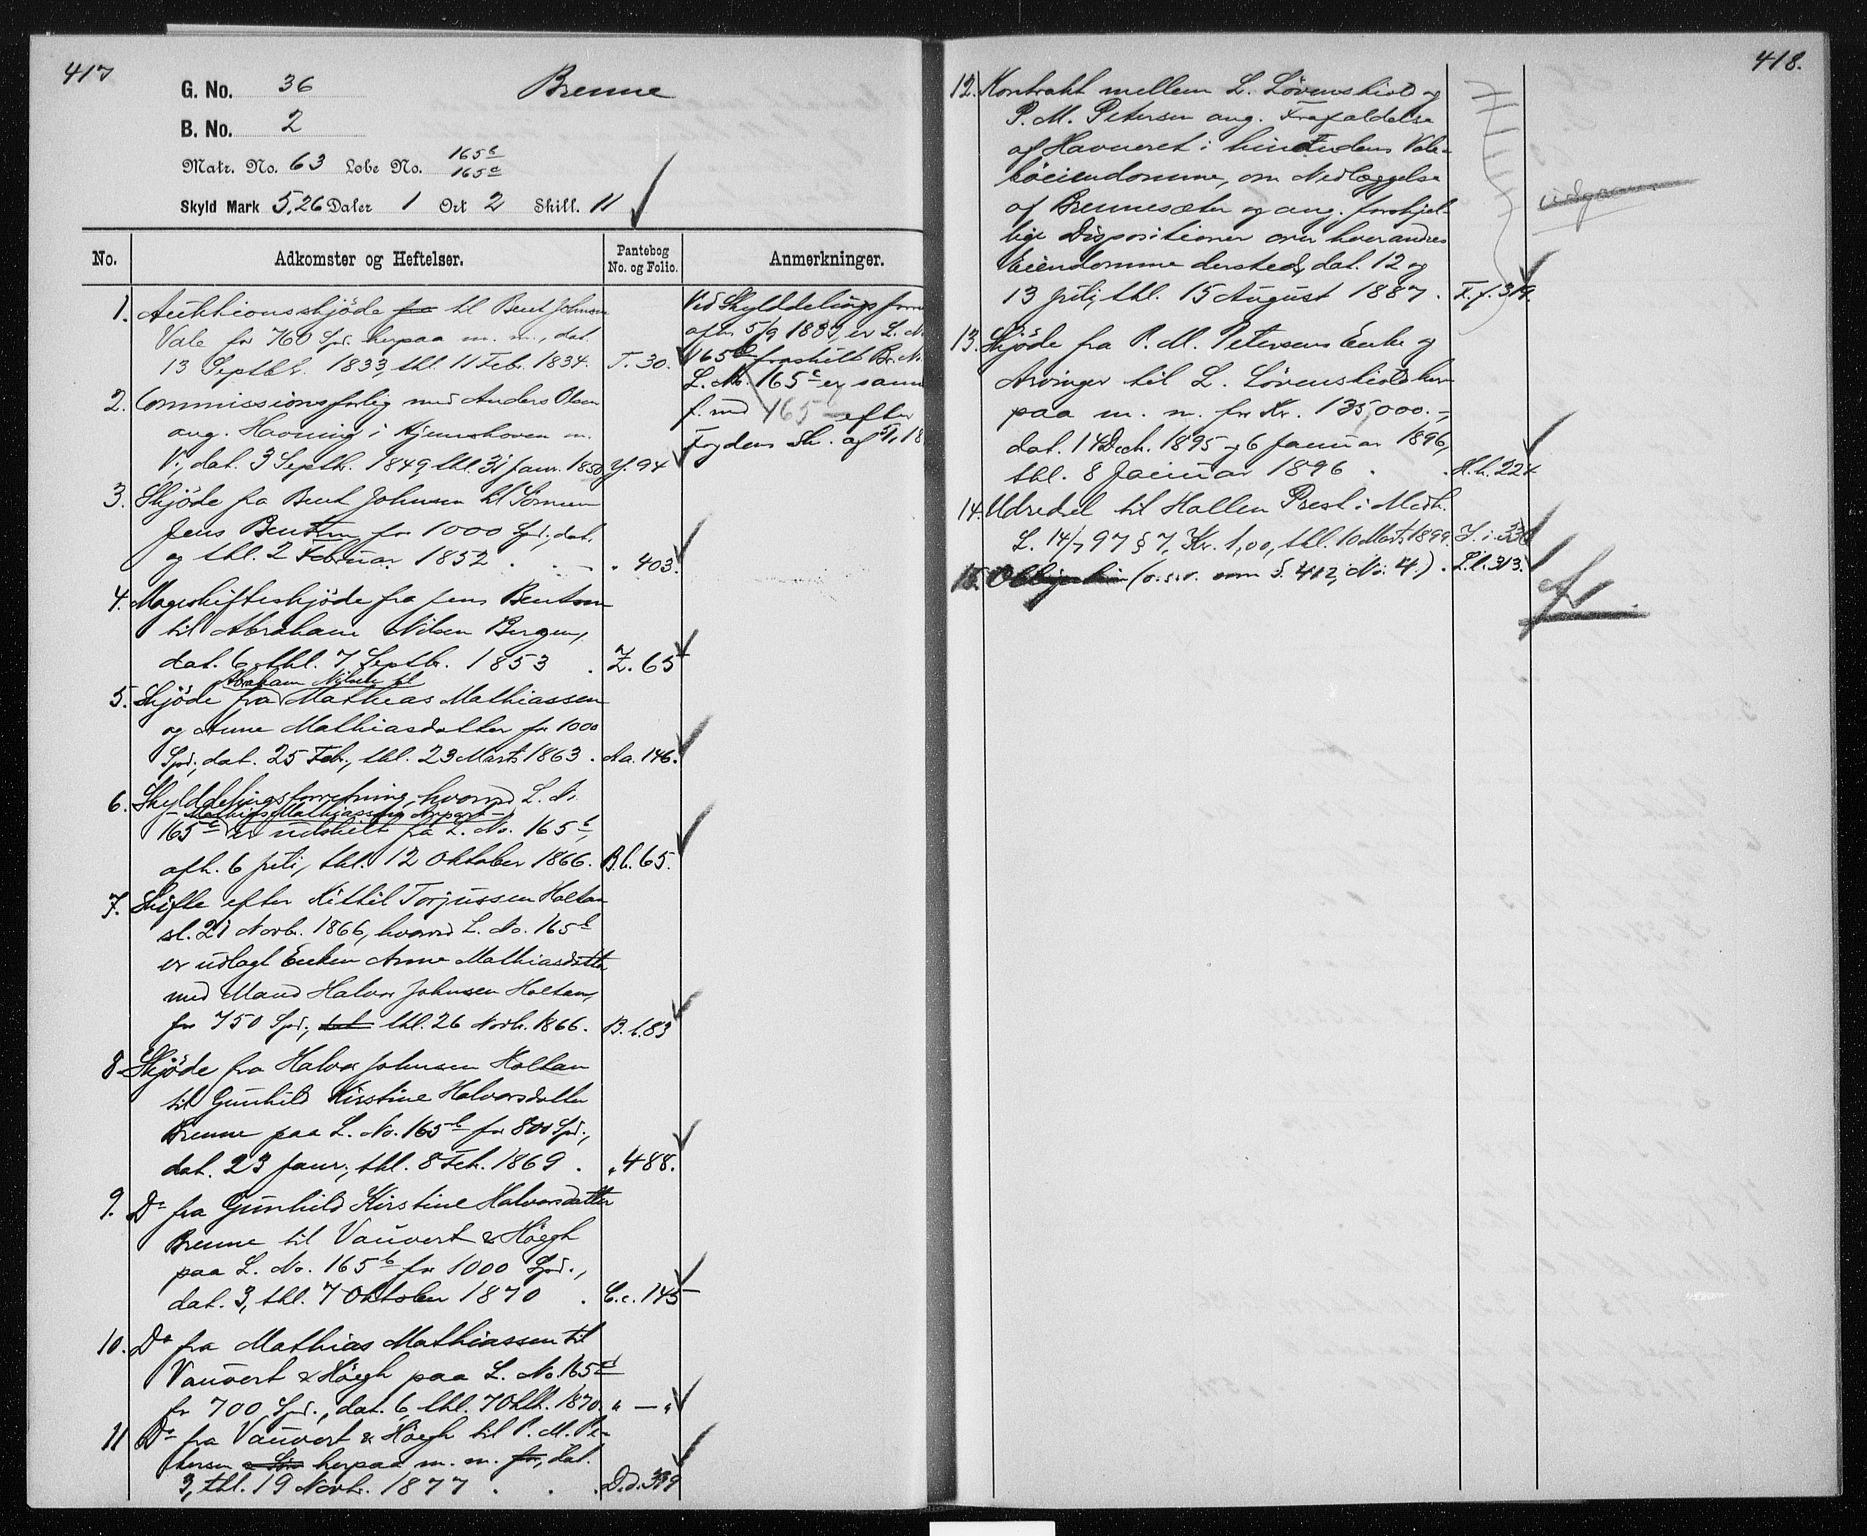 417
G. No. 36 Brenne
B. No. 2
Matr. No. 63 Løbe No. 165b
165c
Skyld Mark 5,26 Daler 1 Ort 2 Skill. 11
No. Adkomster og Heftelser. Pantebog No. og Folio. Anmerkninger.
1. Auktionsskjöde fra til Bent Johnsen
Vale for 760 Spd. herpaa m. m., dat.
13 Septbr. 1833, thl. 11 Feb. 1834. T. 30.
2. Commissionsforlig med Anders Olsen
ang. Havning i Hjemskoven m.
V., dat. 3 Septb. 1849, thl. 31 Janr. 1850 Y. 94
3. Skjöde fra Bent Johnsen til Sönnen
Jens Bentsen for 1000 Spd., dat.
og thl. 2 Februar 1852 . . . " 403.
4. Mageskifteskjöde fra Jens Bentsen
til Abraham Nilsen Bergan,
dat. 6, thl. 7 Septbr. 1853 . Z. 65
Abraham Nilsen til
5. Skjöde fra Mathias Mathiassen
og Anne Mathiasdatter for 1000
Spd., dat. 25 Feb., thl. 23 Marts 1863 . Aa. 146.
6. Skylddelingsforretning, hvorved L. No.
- Mathias Mathiassens Anpart -
165c er udskilt fra L. No. 165b,
afh. 6 Juli, thl. 12 Oktober 1866. B.b. 65.
7. Skifte efter Kittil Torjussen Holtan
sl. 21 Novb. 1866, hvorved L. No. 165b
er udlagt Enken Anne Mathiasdatter
med Mand Halvor Johnsen Holtan,
for 750 Spd., dat. thl. 26 Novb. 1866. B.b. 83
8 Skjöde fra Halvor Johnsen Holtan
til Gunhild Kirstine Halvorsdatter
Brenne paa L. No. 165b for 800 Spd.,
dat. 23 Janr., thl. 8 Feb. 1869 . " 488.
9. Do fra Gunhild Kirstine Halvorsdatter
Brenne til Vauvert & Höegh
paa L. No. 165b for 1000 Spd.,
dat. 3, thl. 7 Oktober 1870 . C.c. 145
10. Do fra Mathias Mathiassen til
Vauvert & Höegh paa L. No. 165c
for 700 Spd., dat. 6, thl. 7 Oktb. 1870. " — "
11 Do fra Vauvert & Höegh til P. M. Pe-
tersen herpaa m. m. for, dat.
3, thl. 19 Novb. 1877 . . . D.d. 339
Ved Skylddelingsforr.
afh. 5/9 1889, er L. No.
165b fraskilt Br. No.
L. No. 165c er sam
f. med 165 efter
Fogdens Sk. af
418.
12. Kontrakt mellem L. Lövenskiold og
P. M. Petersen ang. Frafaldelse
af Havneret i hinTidens Vale-
söeiendomme, om Nedlæggelse
af Brennesæter og ang. forskjel-
lige Dispositioner over hverandres
Eiendomme dersteds, dat. 12 og
13 Juli, thl. 15 August 1887 . F.f. 319.
udgaar
13. Skjöde fra P. M. Petersens Enke og
Arvinger til L. Lövenskiold her-
paa m. m. for Kr. 135,000.-,
dat. 14 Decb. 1895 og 6 Januar 1896,
thl. 8 Januar 1896 . . H.h. 224
14. Udredsel til Hollen Prest i Medh.
L. 14/7 97 § 7, Kr. 1,00, thl. 10 Marts 1899. I.i. 336
15. Obligation (o.s.v. som S. 412, No: 4.) . L.l. 313.